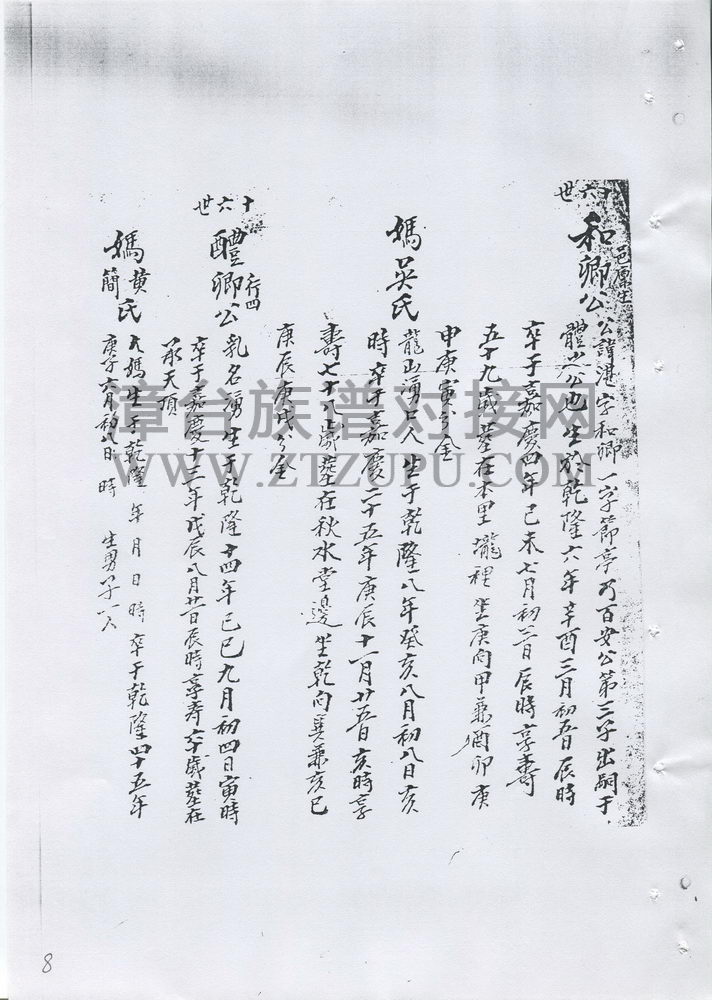 十六世
邑庠生
和卿公
公諱湛字和卿一字節亭乃百安公第三子出嗣于
體公也生於乾隆六年辛酉三月初五日辰時
卒于嘉慶四年己未七月初三日辰時享壽
五十九歲葬在本里壠裡坐庚向甲兼酉卯庚
申庚寅分金
媽吳氏
龍山湧口人生于乾隆八年癸亥八月初八日亥
時卒于嘉慶二十五年庚辰十一月廿五日亥時享
壽七十八歲葬在秋水堂邊坐乾向巽兼亥巳
庚辰庚戌分金
十六世
行四
醴卿公
乳名湧生于乾隆十四年己巳九月初四日寅時
卒于嘉慶十三年戊辰八月廿日辰時享壽六十歲葬在
天頂
媽黃簡氏
大媽生于乾隆 年 月 日 時卒于乾隆四十五年
庚子六月初八日 時 生男子一人
漳台族谱对接网
WWW.ZTZUPU.COM
8